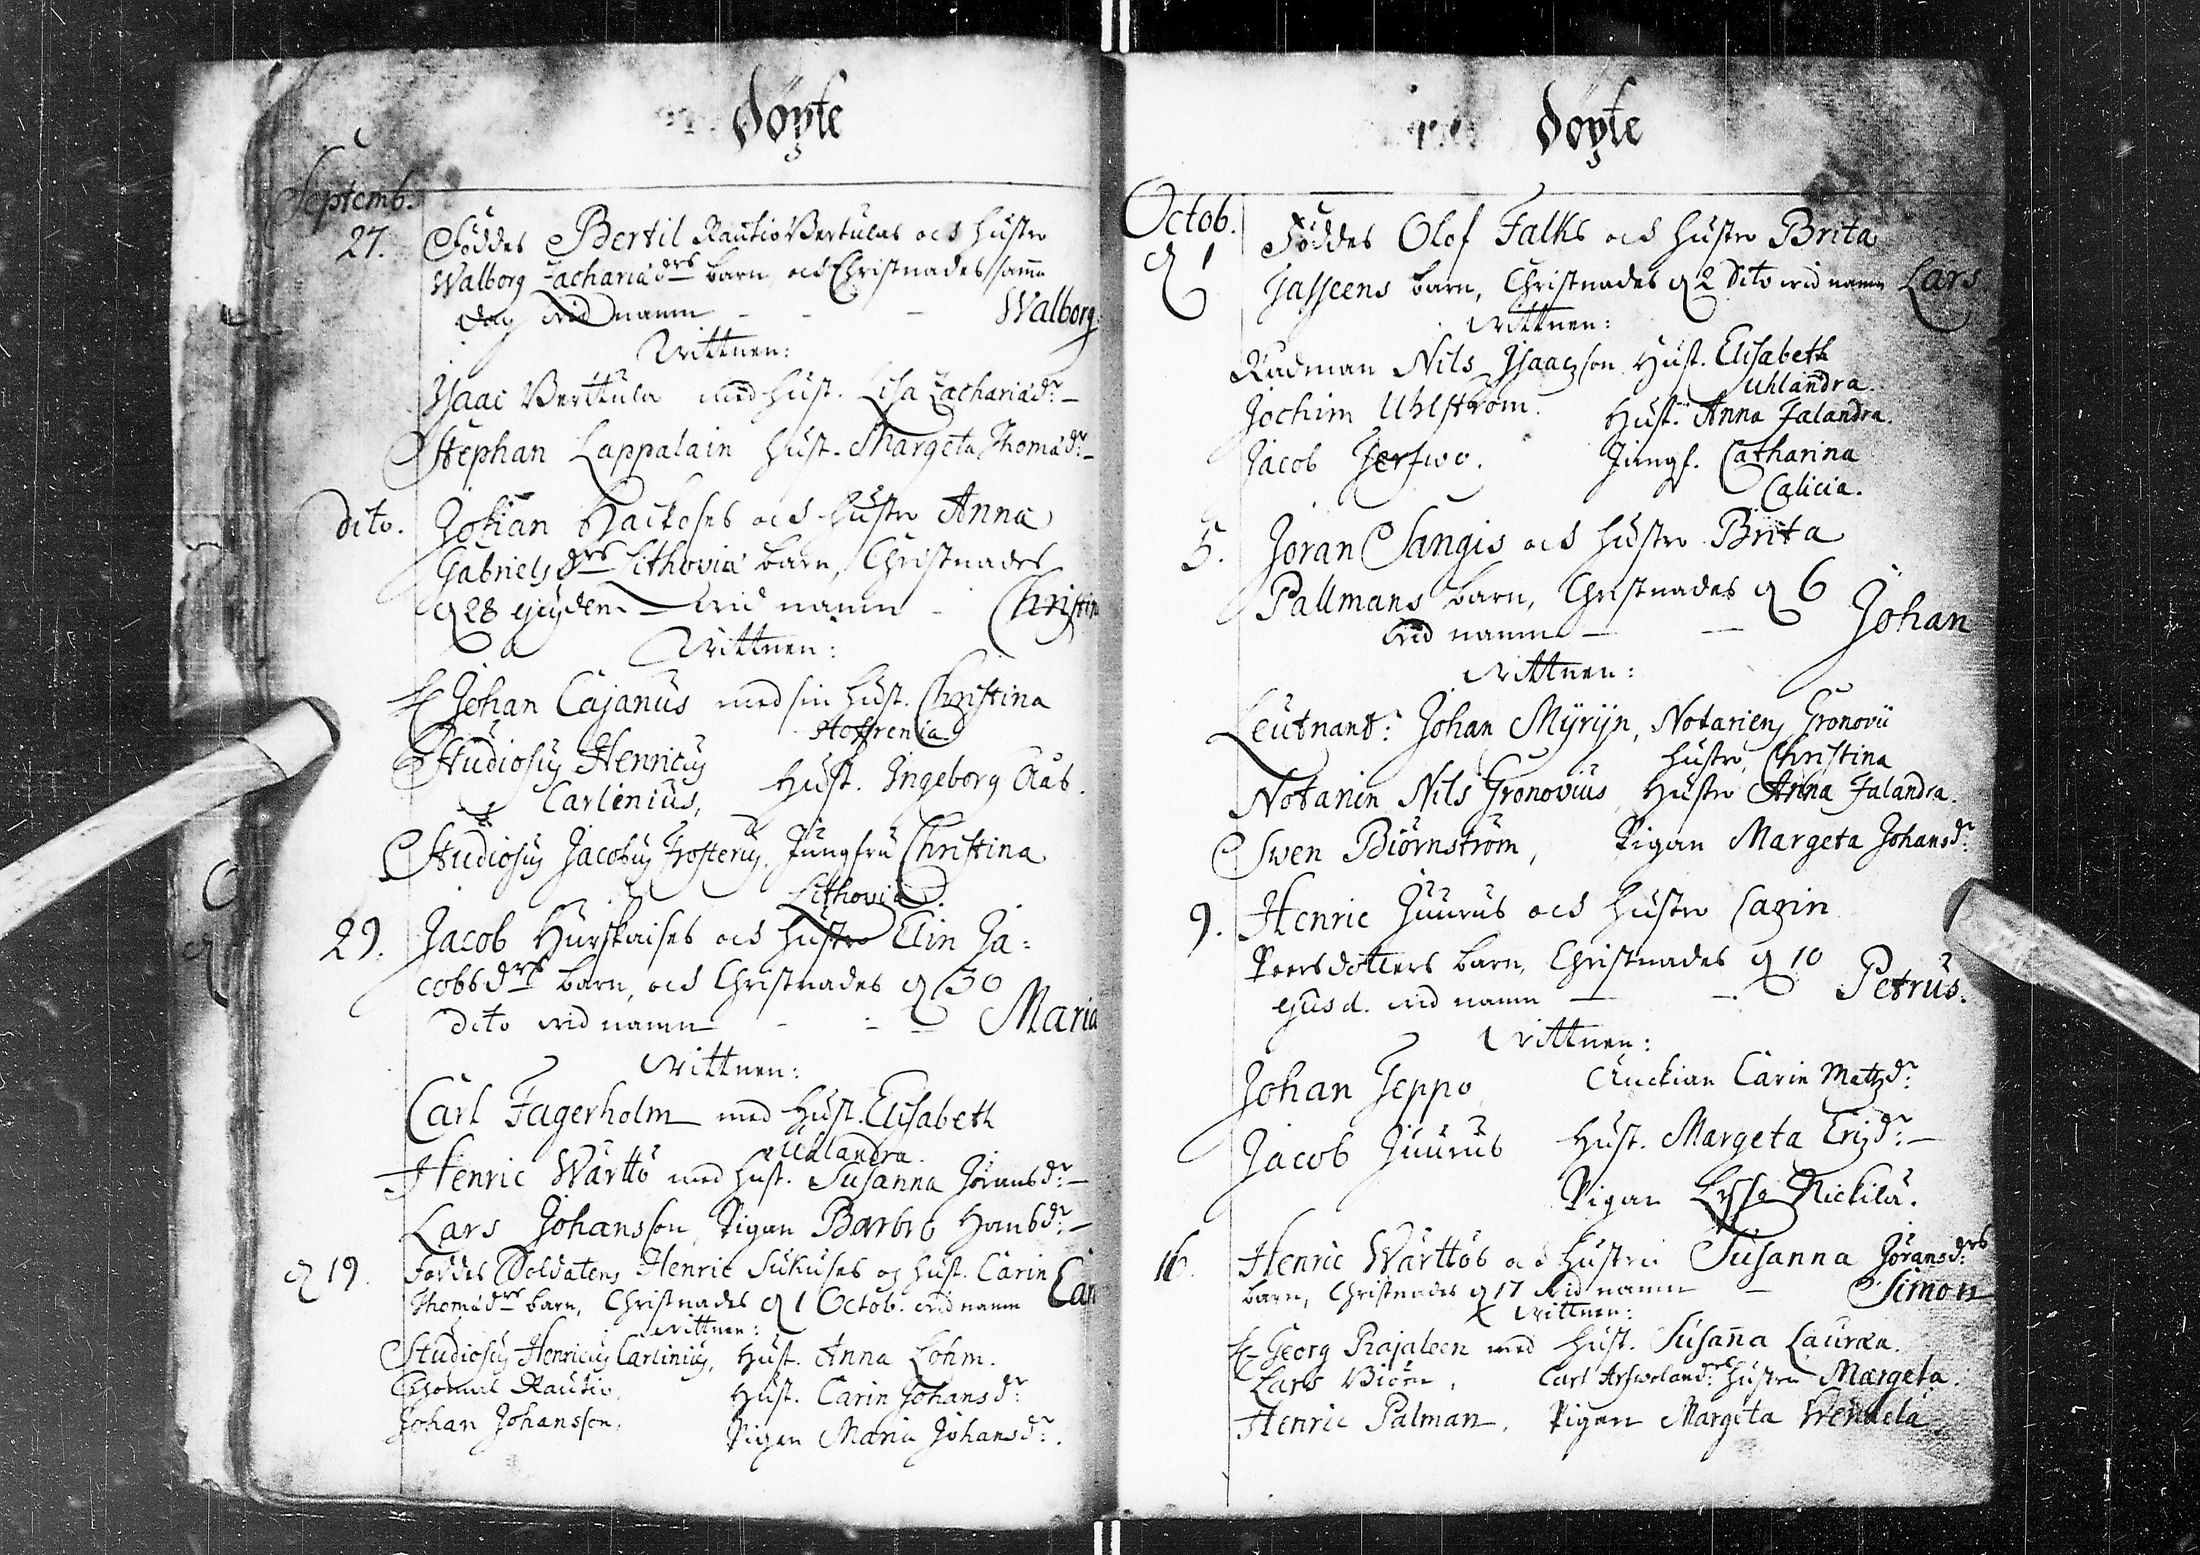 döpte
Septemb.
27. Föddes Bertil Rautio Bertulas och hustro
Walborg Zachariædrs barn, och Christnades samma
dag wid namn - - - Walborg.
Wittnen:
Isaac Berttula med hust. Lisa Zachariædr.
Stephan Lappalain hust. Margeta Thomædr.
dito. Johan Hackoses och hustro Anna
Gabrielsdrs Lithoviæ barn, Christnades
d 28 ejusdem wid namn - Christin
Wittnen:
H Johan Cajanus med sin hust. Christina
Hoffrenia.
Studiosus Henricus
Carlenius, Hust. Ingeborg Clas.
Studiosus Jacobus Frosterus, Jungfru Christina
Lithovia.
29. Jacob Hurskaises och hustro Elin Ja=
cobsdrs barn, och Christnades d 30
dito wid namn - - - Maria
Wittnen:
Carl Fagerholm med Hust. Elisabeth
Uhlandra.
Henric Wärttö med hust. Susanna Jöransdr.
Lars Johansson, Pigan Barbro Hansdr.
d 19. Föddes Soldatens Henric Sukuses og hust. Carin
Thomædrs barn, Christnades d 1 Octob. wid namn Car
Wittnen:
Studiosus Henricus Carlinius, Hust. Anna Lohm.
Rautio, Hust. Carin Johansdr.
Johan Johansson, Pigan Maria Johansdr.
döpte
Octob.
d 1 Föddes Olof Falks och hustro Brita
Jasseens barn, Christnades d 2 dito wid namn Lars
Wittnen:
Rådman Nils Isaacsson Hust. Elisabeth
Uhlandra.
Jochim Uhlström. Hust. Anna Falandra.
Jacob Jerfwo. Jungf. Catharina
Calicia.
5. Jöran Sangis och hustro Brita
Pallmans barn, Christnades d 6
wid namn - - Johan
Wittnen:
Leutnant: Johan Myrijn, Notariens Gronovii
hustro, Christina
Notarien Nils Gronovius, Hustro Anna Falandra.
Swen Biörnström, Pigan Margeta Johansdr.
9. Henric Juurus och hustro Carin
Peersdotters barn, Christnades d 10
ejusd. wid namn - - Petrus.
Wittnen:
Johan Jeppo, Enckian Carin Matzdr.
Jacob Juurus Hust. Margeta Ericdr.
Pigan Lissa Nickilä.
16. Henric Wärttös och hustru Susanna Jöransdrs
barn, Christnades d 17 wid namn - Simon
Wittnen:
H Georg Prajaleen med hust. Susanna Lauræa.
Lars Biörn, Carl Hustru Margeta.
Henric Palman, Pigan Margeta Wendela